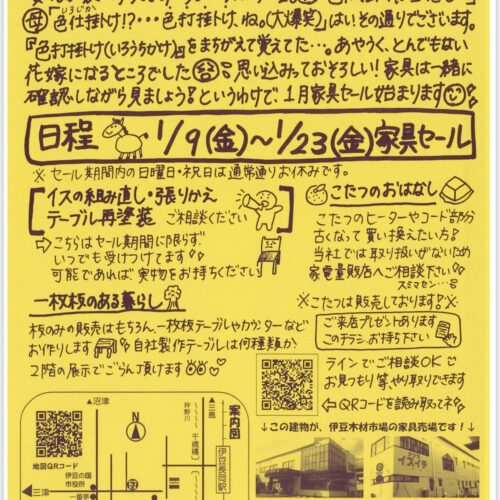 いろじかけ
母「色仕掛け!?…色打掛け、ね。(大爆笑)」はい、その通りでございます。
『色打掛け(いろうちかけ)』をまちがえて覚えてた…。あやうく、とんでもない
花嫁になるところでした 思い込みっておそろしい!家具は一緒に
確認しながら見ましょう!というわけで、1月家具セール始まります
日程 1/9(金)〜1/23(金)家具セール
※セール期間内の日曜日・祝日は通常通りお休みです。
イスの組み直し・張りかえ
テーブル再塗装 ご相談ください
⇨こちらはセール期間に限らず、
いつでも受けつけてます!
可能であれば実物をお持ちください
こたつのおはなし
こたつのヒーターやコード部分
古くなって買い換えたい方!
当社では取り扱いがないため
家電量販店へご相談下さい
スミマセン…
※こたつは販売しております!※
一枚板のある暮らし
板のみの販売はもちろん、一枚板テーブルやカウンターなど
お作りします 自社製作テーブルは何種類か
2階の展示でごらん頂けます
ご来店プレゼントあります
このチラシお持ち下さい
ラインでご相談OK
お見つもり等、やり取りできます
←QRコードを読み取ってネ
案内図
↑沼津
↑三島
狩野川
千歳橋
伊豆長岡駅
N
地図QRコード
伊豆の国
市役所
←三津
↓この建物が、伊豆木材市場の家具売場です!↓
イズイチ